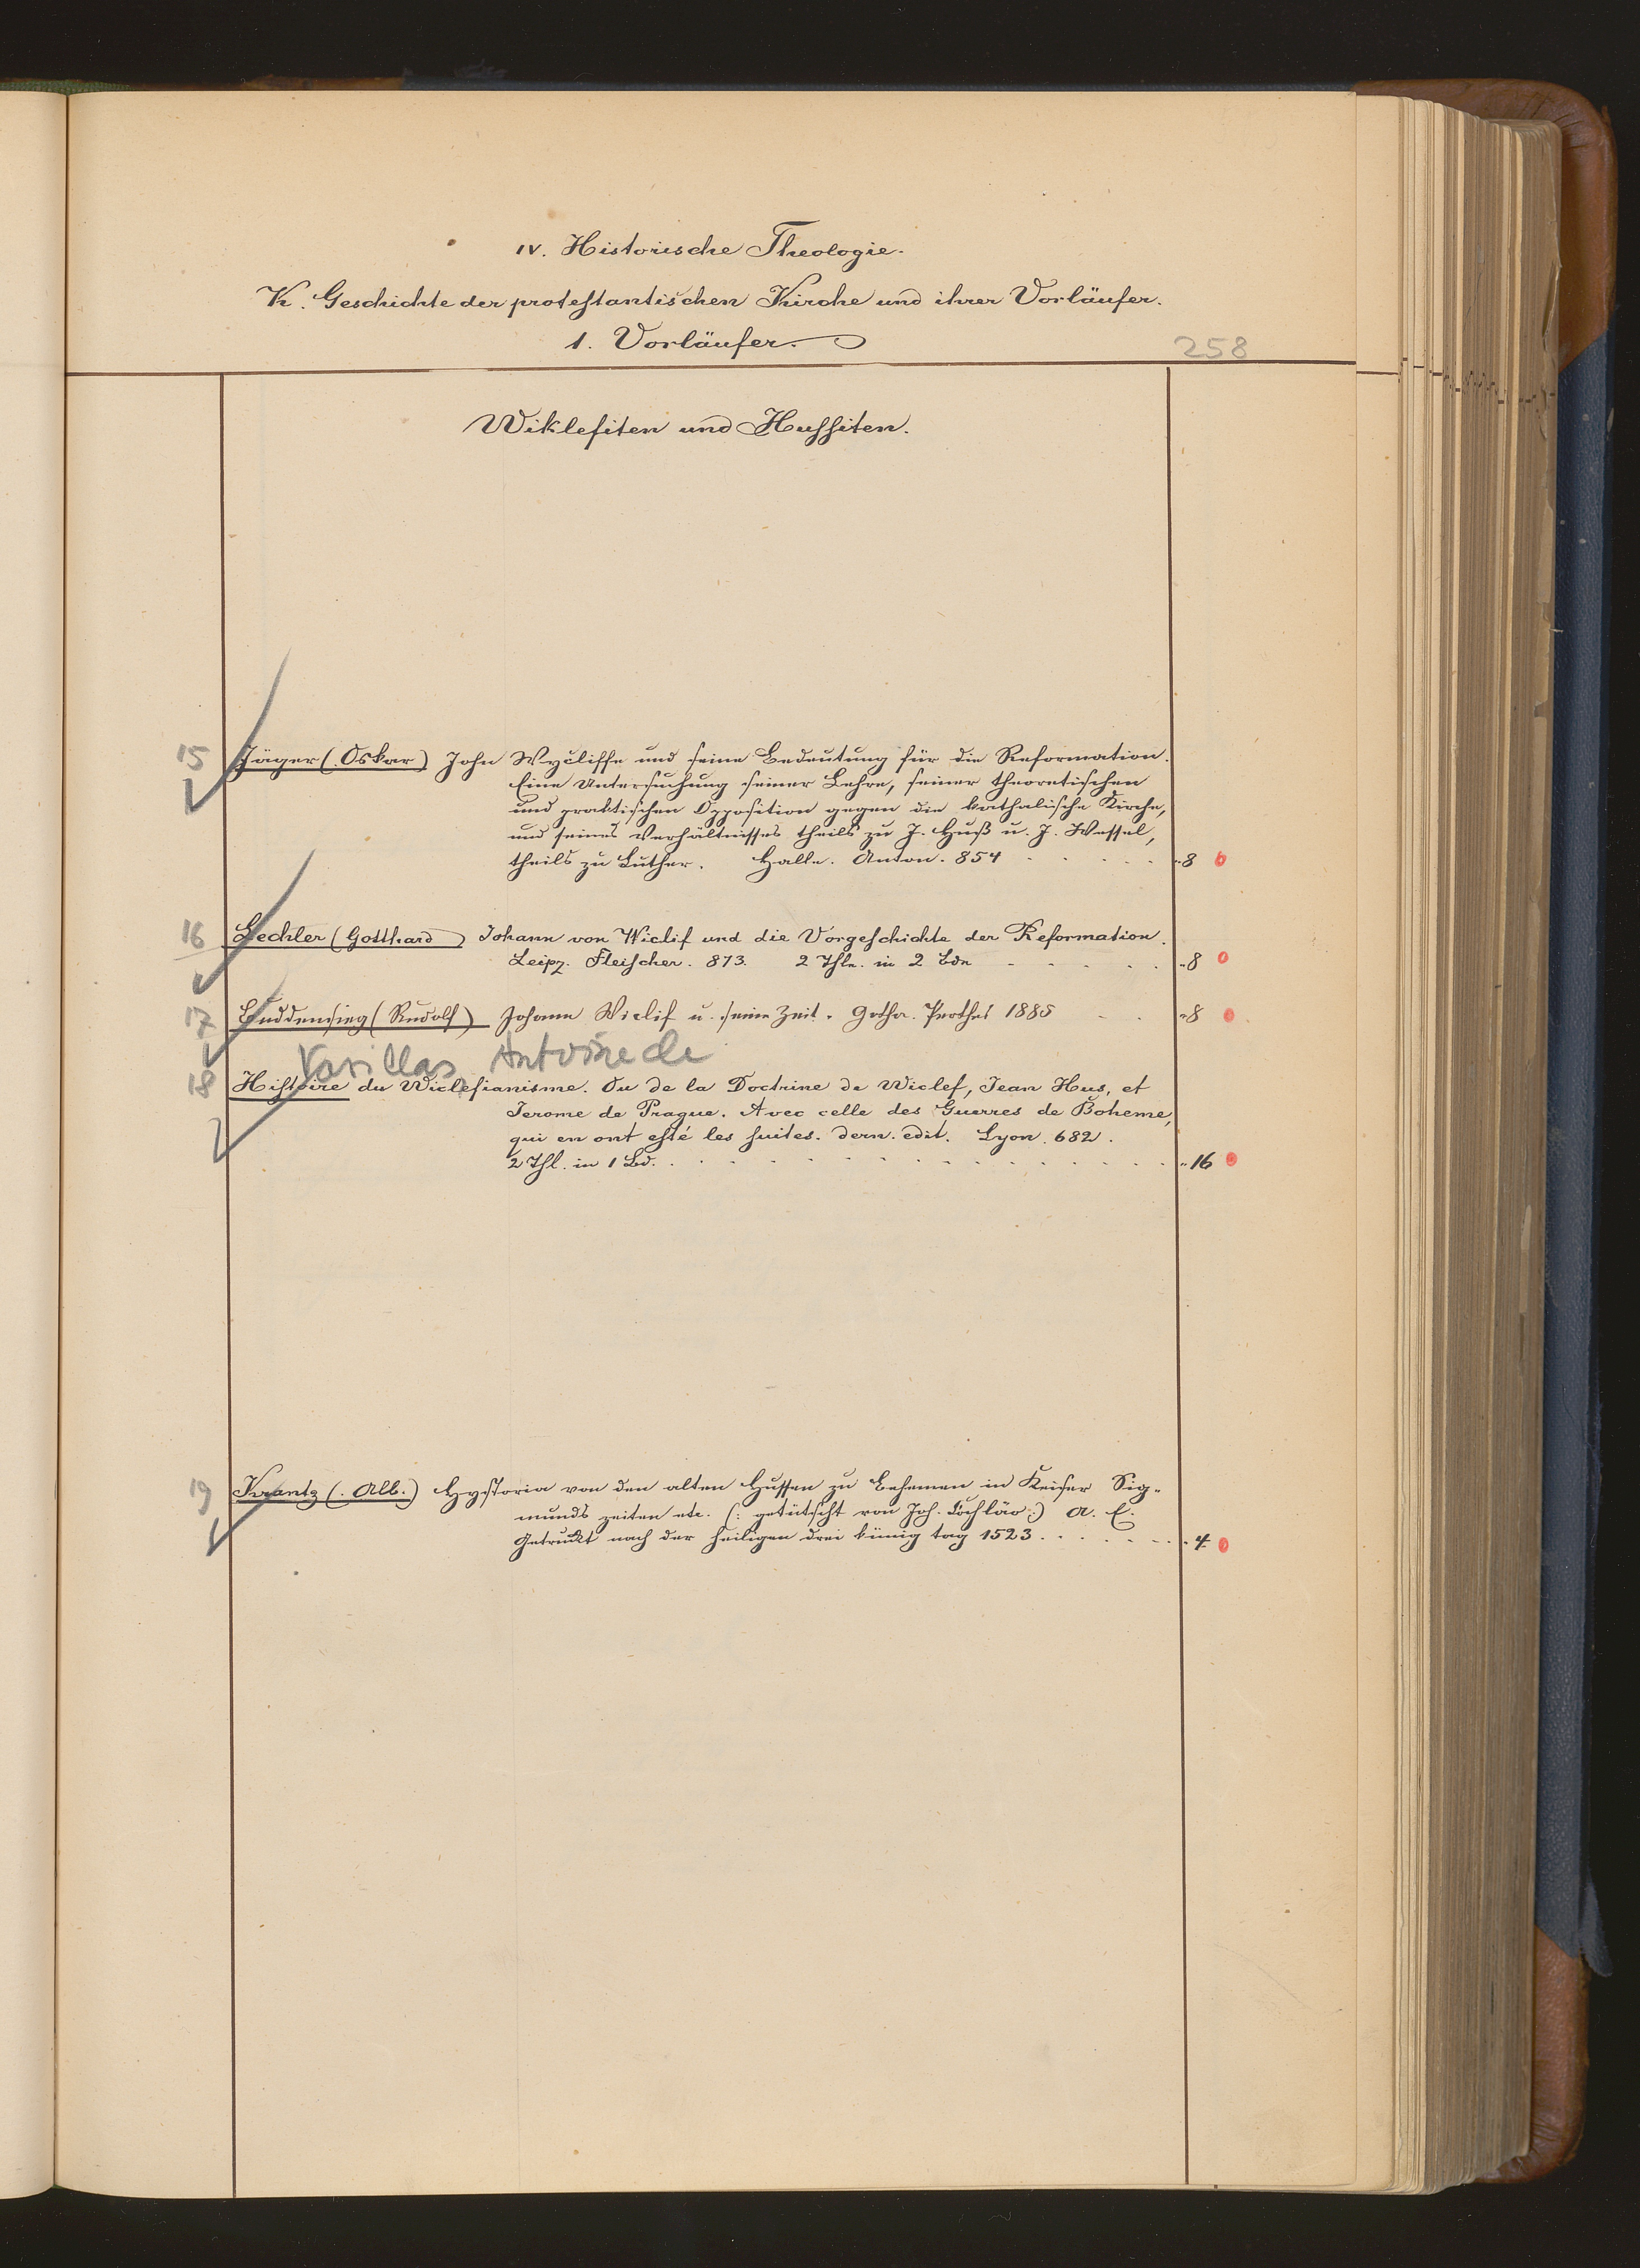 IV. Historische Theologie.
K. Geschichte der protestantischen Kirche und ihrer Vorläufer.
1. Vorläufer.
258
Wiklefiten und Hussiten.
15 Jäger (Oskar) John Wycliffe und seine Bedeutung für die Reformation.
Eine Untersuchung seiner Lehre, seiner theoretischen
und praktischen Opposition gegen die katholische Kirche,
und seines Verhältnisses theils zu J. Huß u. J. Wessel,
theils zu Luther. Halle. Anton. 854 . . . . . „8
16 Lechler (Gotthard) Johann von Wiclif und die Vorgeschichte der Reformation.
Leipz. Fleischer. 873. 2 Thle. in 2 Bdn . . . . . „8
17 Buddensieg (Rudolf) Johann Wiclif u. seine Zeit. Gotha. Perthes 1885 . . . „8
Varillas, Antoine de
18 Histoire du Wiclefianisme. Ou de la Doctrine de Wiclef, Jean Hus, et
Jerome de Prague. Avec celle des Guerres de Boheme,
qui en ont esté les suites. dern. edit. Lyon. 682.
2 Thl. in 1 Bd. . . . . . . . . . . . . . . . . . „16
19 Krantz (Alb.) Hystoria von den alten Hussen zu Behemen in Keiser Sig-
munds zeiten etc. (: getütscht von Joh. Cochläo :) A. E.
Getruckt nach der heiligen drei künig tag 1523 . . . . . . „4